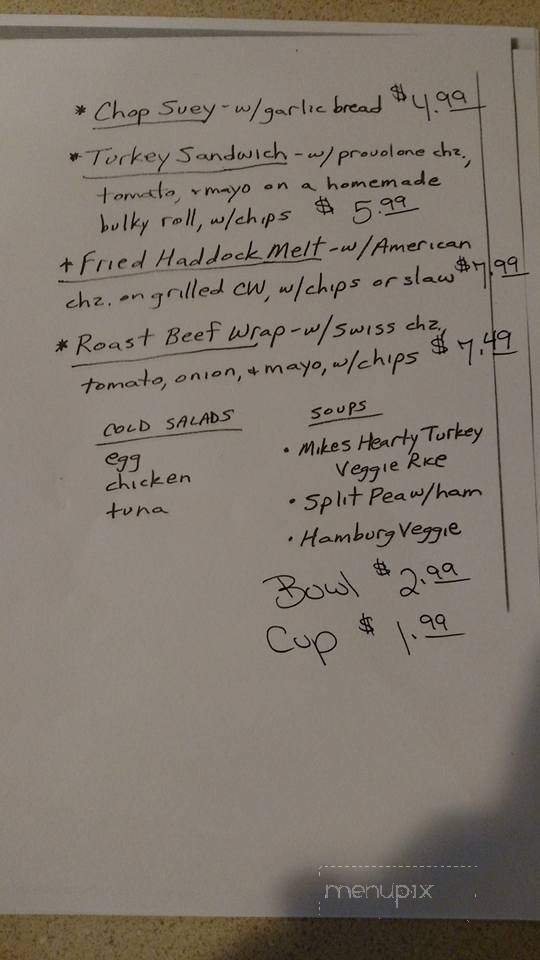 * Chop Suey - w/garlic bread $4.99
* Turkey Sandwich - w/ provolone chz.,
tomato, + mayo on a homemade
bulky roll, w/chips $ 5.99
+ Fried Haddock Melt - w/American
chz. on grilled CW, w/chips or slaw $7.99
* Roast Beef Wrap - w/ swiss chz,
tomato, onion, + mayo, w/chips $ 7.49
COLD SALADS
egg
chicken
tuna
SOUPS
• Mikes Hearty Turkey
Veggie Rice
• Split Pea w/ham
• Hamburg Veggie
Bowl $ 2.99
Cup $ 1.99
menupix